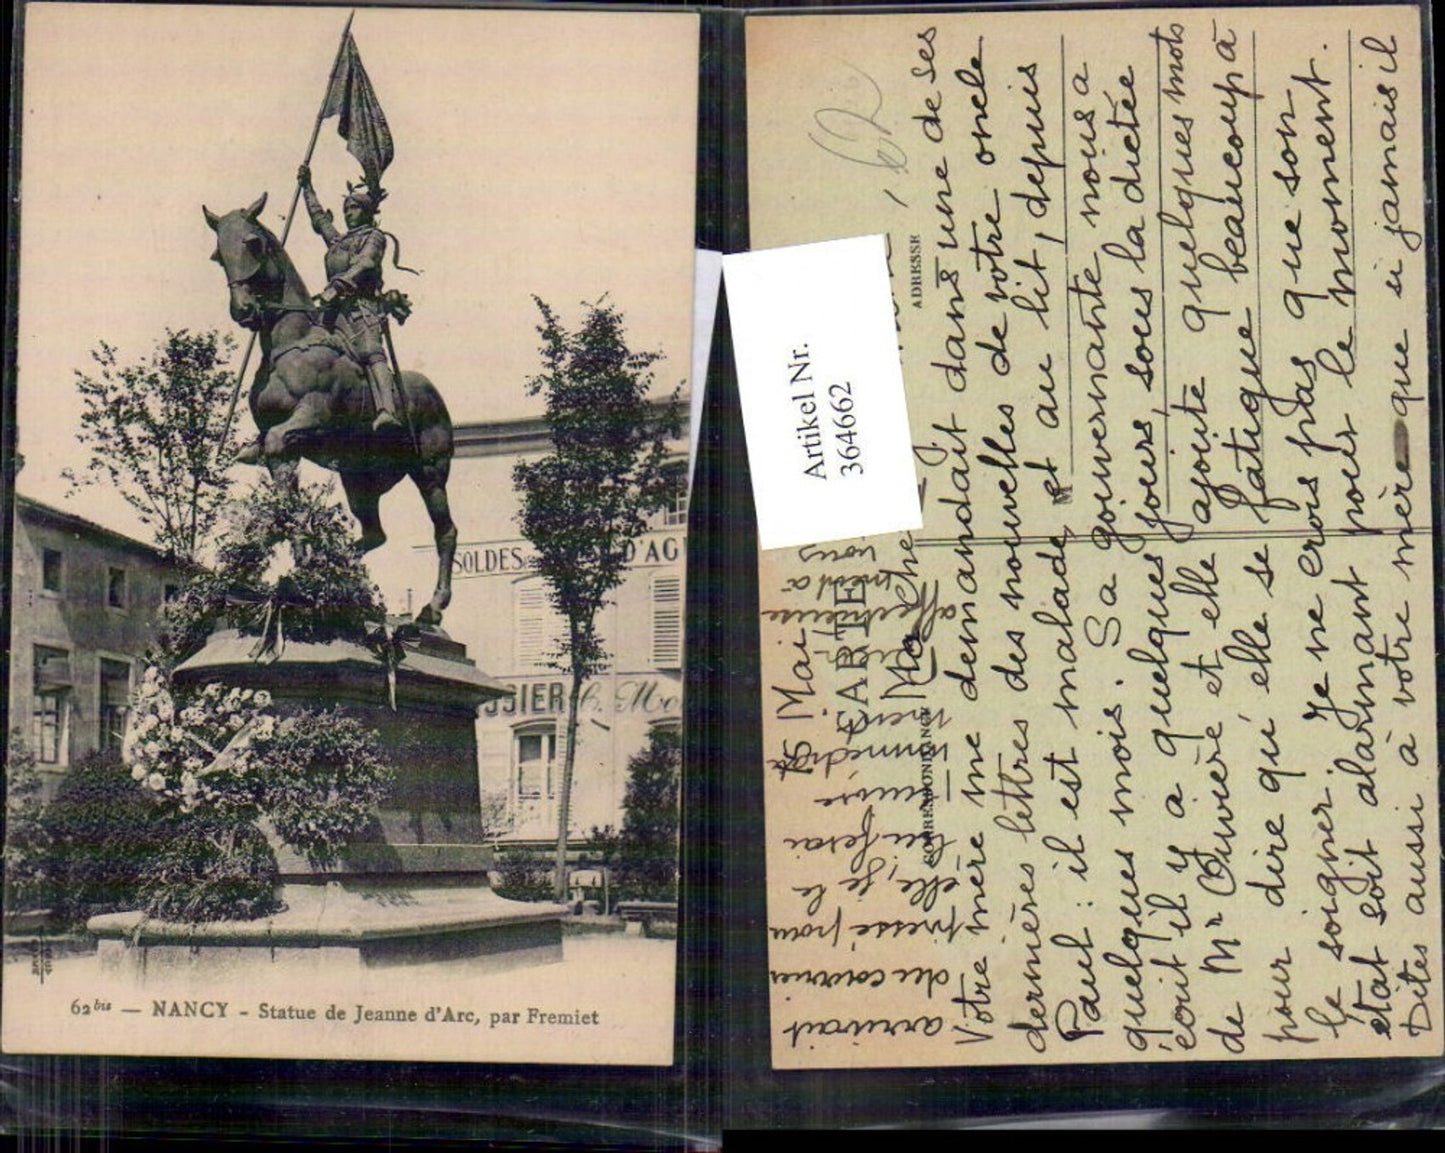 SOLDES D'AG
SSIER C. Mo
62bis — NANCY - Statue de Jeanne d'Arc, par Fremiet
Artikel Nr.
364662
62
ADRESSE
CARTE
CORRESPONDANCE
15 Mai
Votre mère me demandait dans une de ses
dernières lettres des nouvelles de votre oncle
Paul : il est malade et au lit, depuis
quelques mois. Sa gouvernante nous a
écrit il y a quelques jours, sous la dictée
de Mr Ouvière et elle ajoute quelques mots
pour dire qu'elle se fatigue beaucoup à
le soigner. Je ne crois pas que son
état soit alarmant pour le moment.
Dites aussi à votre mère que si jamais il
arrivait
du courrier
pressé pour
elle, je le
lui ferai
suivre